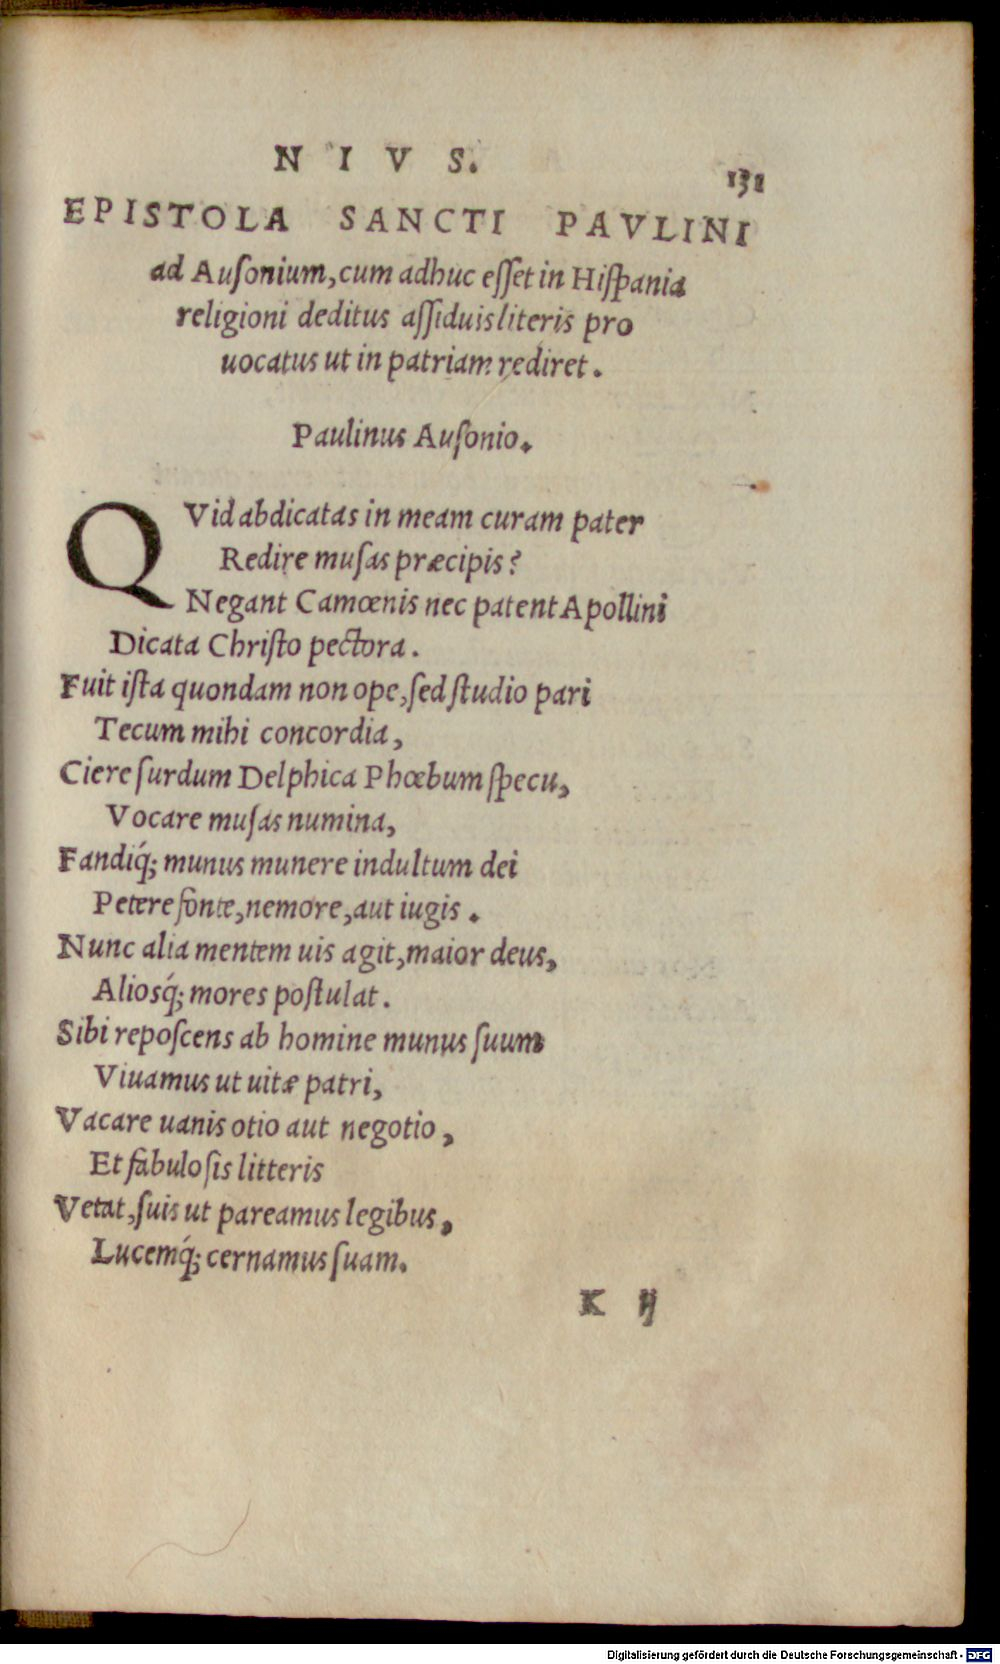 N I V S.
131
EPISTOLA SANCTI PAVLINI
ad Auſonium, cum adhuc eſſet in Hiſpania
religioni deditus aſſiduis literis pro
uocatus ut in patriam rediret.
Paulinus Auſonio.
QVid abdicatas in meam curam pater
Redire muſas præcipis?
Negant Camœnis nec patent Apollini
Dicata Chriſto pectora.
Fuit iſta quondam non ope, ſed ſtudio pari
Tecum mihi concordia,
Ciere ſurdum Delphica Phœbum ſpecu,
Vocare muſas numina,
Fandiq́; munus munere indultum dei
Petere fonte, nemore, aut iugis.
Nunc alia mentem uis agit, maior deus,
Alioſq́; mores poſtulat.
Sibi repoſcens ab homine munus ſuum
Viuamus ut uitæ patri,
Vacare uanis otio aut negotio,
Et fabuloſis litteris
Vetat, ſuis ut pareamus legibus,
Lucemq́; cernamus ſuam.
K ij
Digitalisierung gefördert durch die Deutsche Forschungsgemeinschaft - DFG